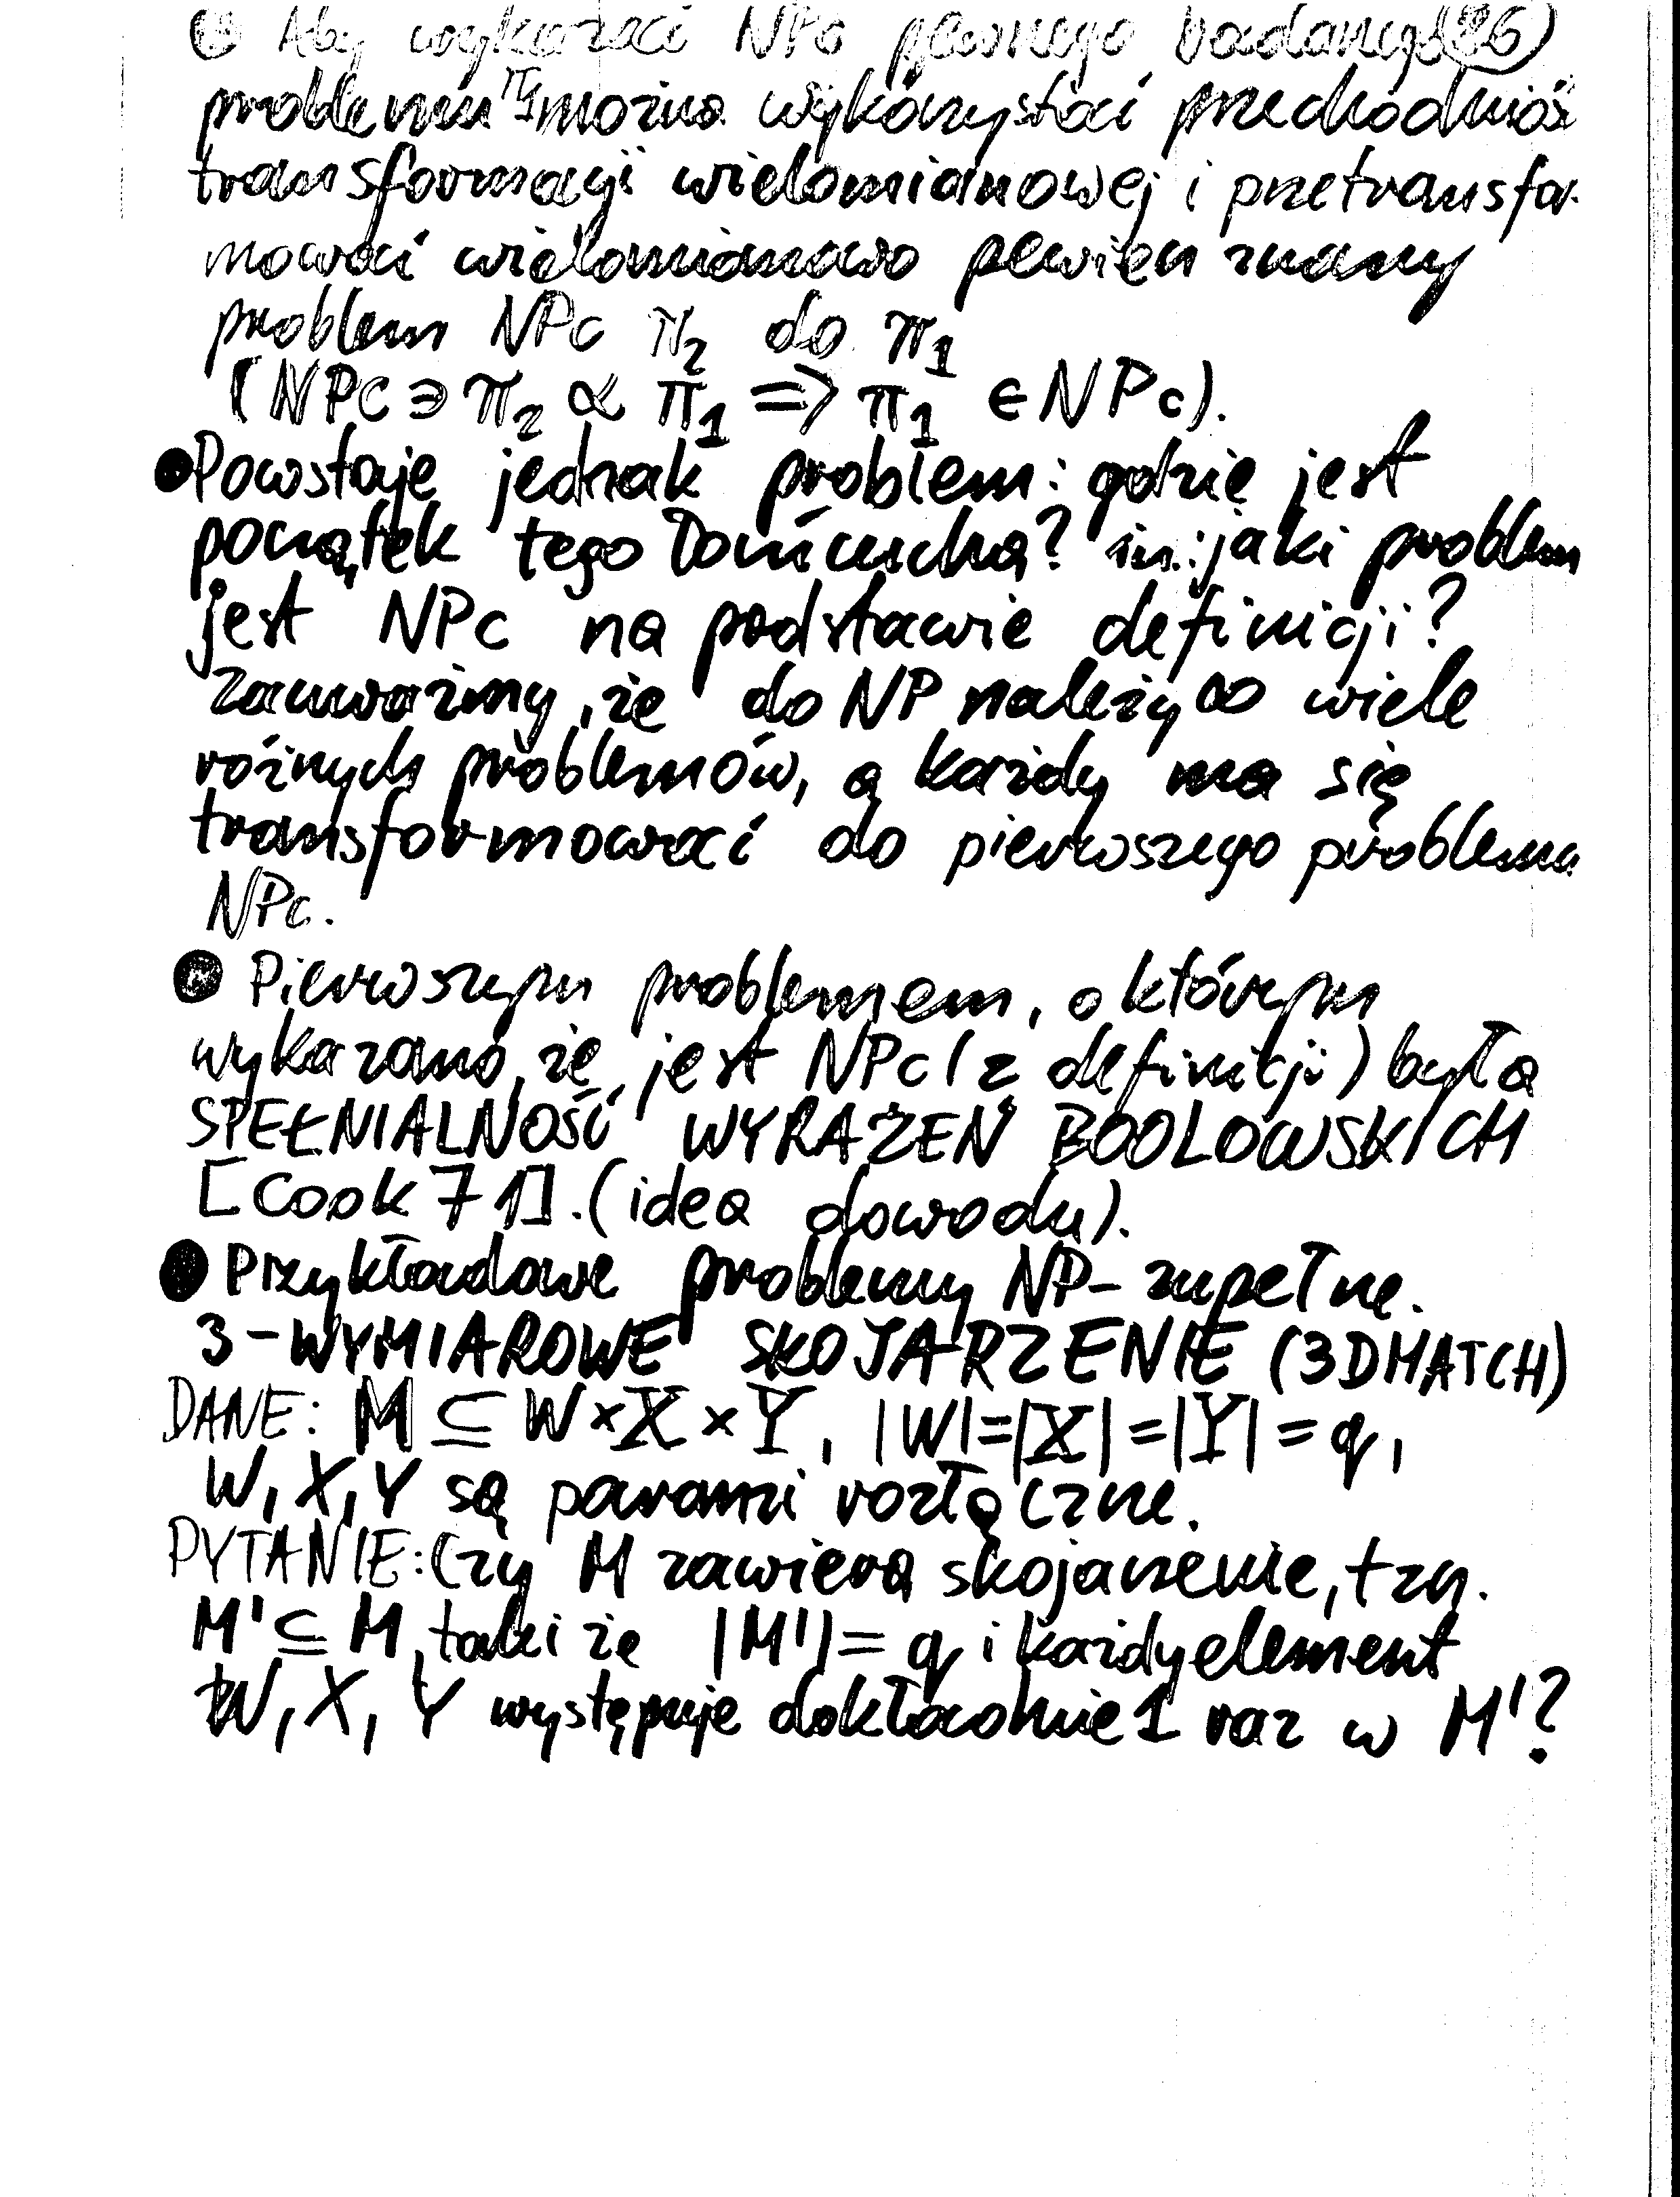 Aby wykazać NPc pewnego badanego 26
problemu π1 można wykorzystać przechodniość
transformacji wielomianowej i przetransfor-
mować wielomianowo pewien znany
problem NPc π2 do π1
(NPc ∋ π2 ∝ π1 => π1 ∈ NPc).
● Powstaje jednak problem: gdzie jest
początek tego łańcucha? in.: jaki problem
jest NPc na podstawie definicji?
Zauważmy, że do NP należy ∞ wiele
różnych problemów, a każdy ma się
transformować do pierwszego problemu
NPc.
● Pierwszym problemem, o którym
wykazano, że jest NPc (z definicji) była
SPEŁNIALNOŚĆ WYRAŻEŃ BOOLOWSKICH
[Cook 71]. (idea dowodu).
● Przykładowe problemy NP-zupełne.
3-WYMIAROWE SKOJARZENIE (3DMATCH)
DANE: M ⊆ W×X×Y, |W|=|X|=|Y|=q,
W, X, Y są parami rozłączne.
PYTANIE: Czy M zawiera skojarzenie, tzn.
M' ⊆ M, taki że |M'|= q i każdy element
W, X, Y występuje dokładnie 1 raz w M'?